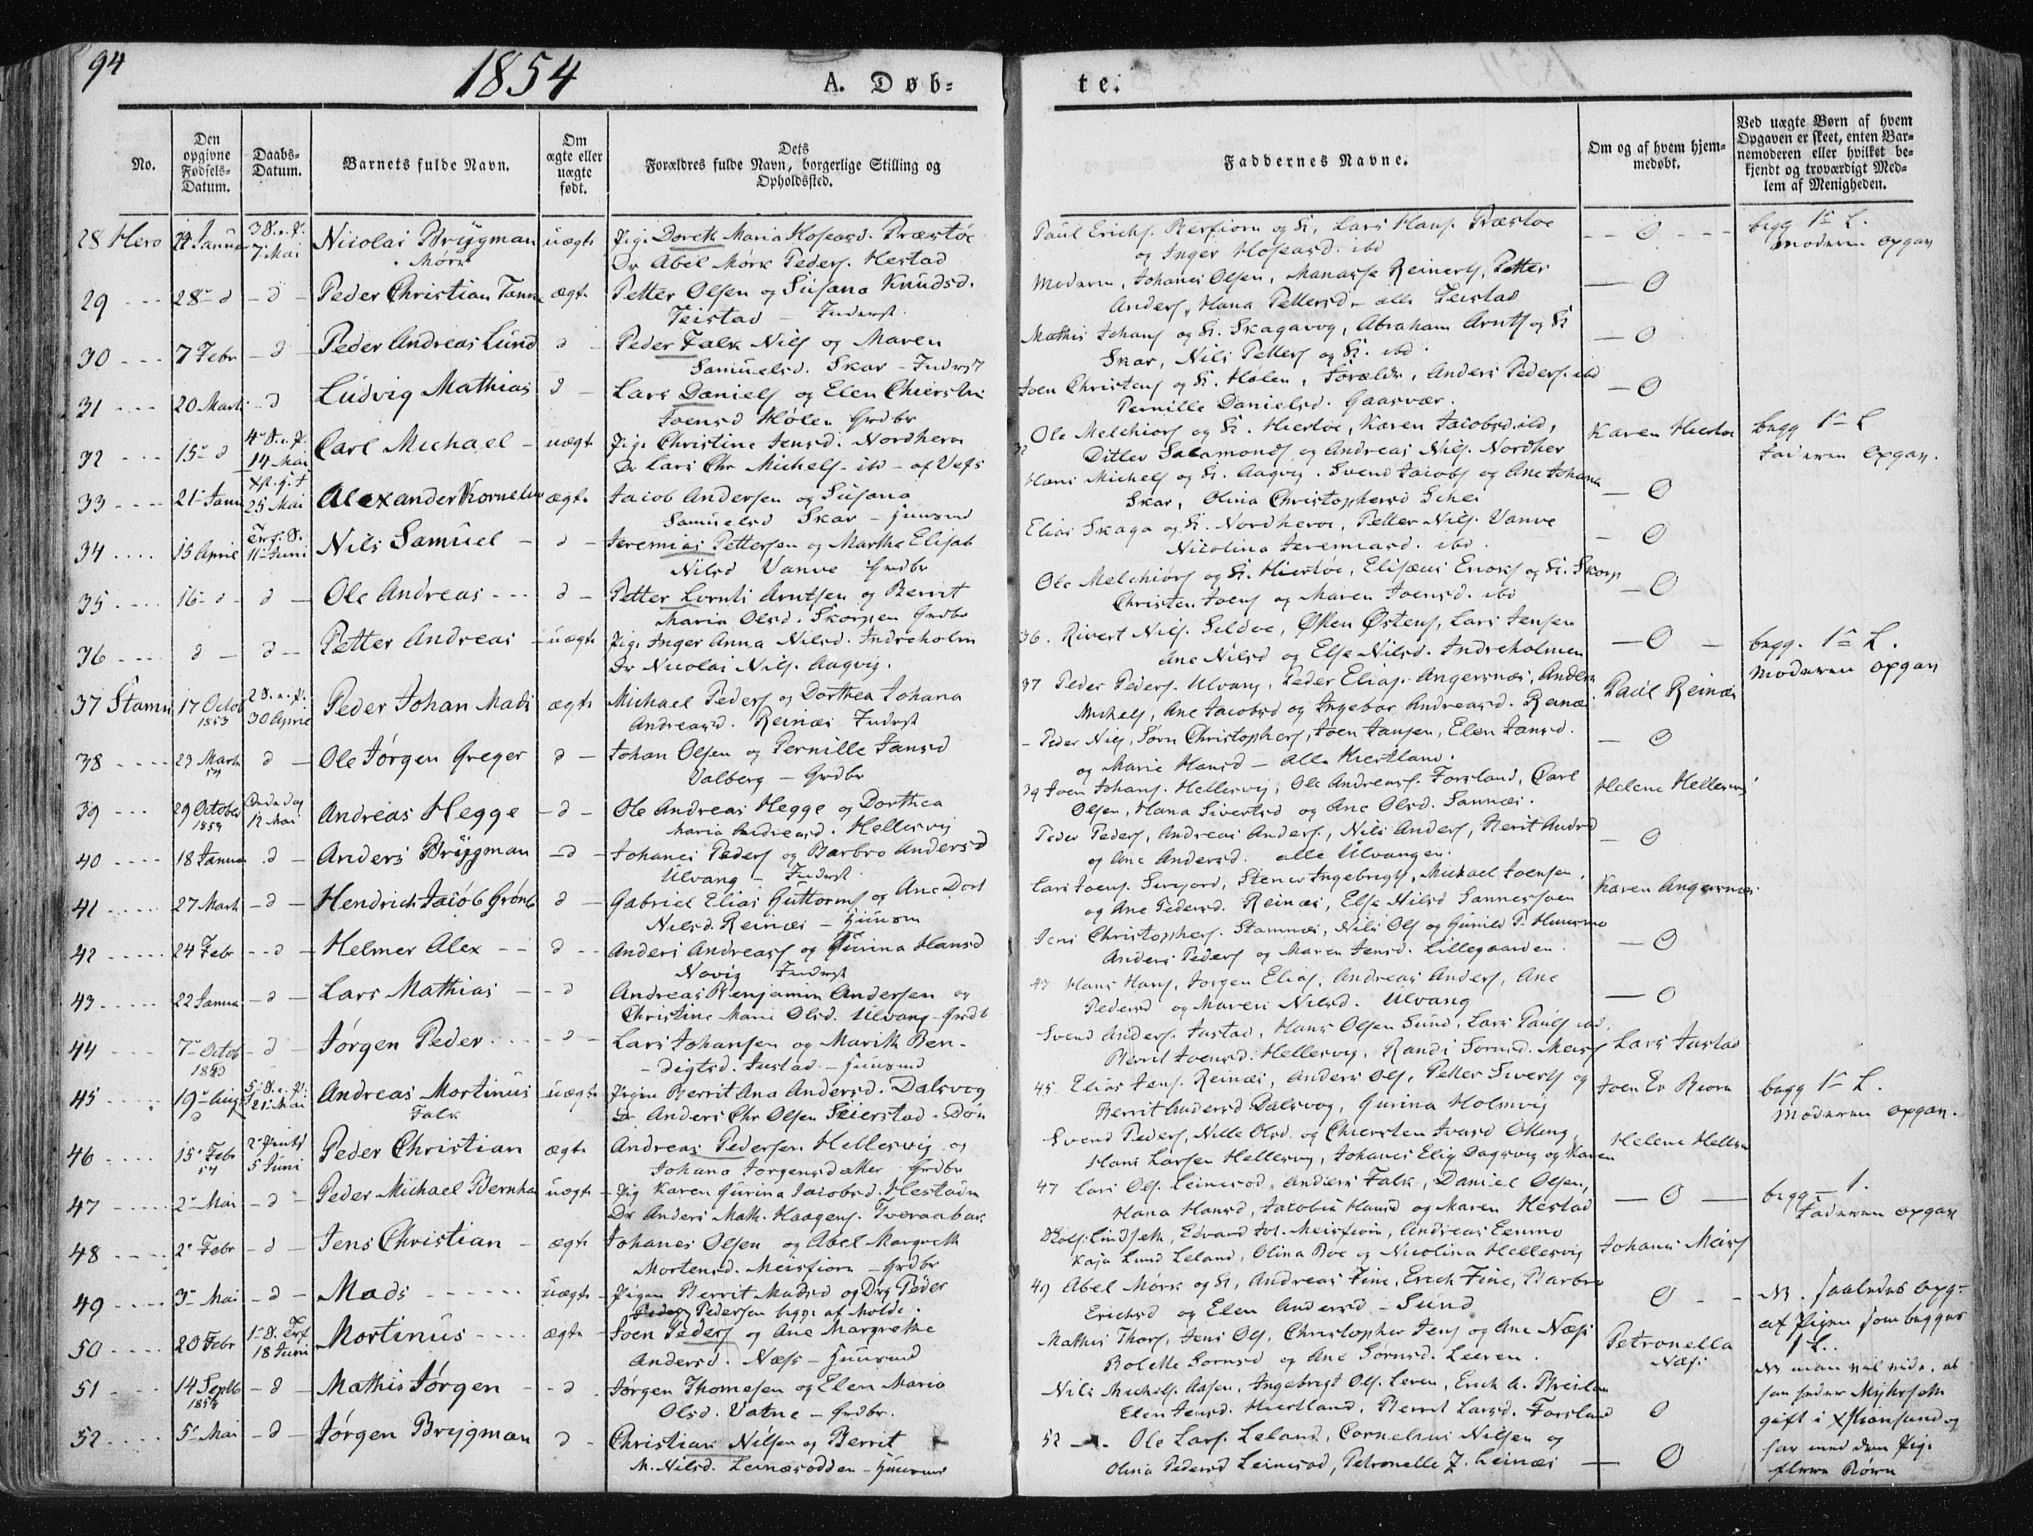 94
1854
A. Døb-
te.
No.
Den opgivne Fødsels-Datum.
Daabs-Datum.
Barnets fulde Navn.
Om ægte eller uægte født.
Dets
Forældres fulde Navn, borgerlige Stilling og
Opholdssted.
Faddernes Navne.
Om og af hvem hjem-
medøbt.
Ved uægte Børn af hvem
Opgaven er skeet, enten Bar-
nemoderen eller hvilket be-
kjendt og troværdigt Med-
lem af Menigheden.
28 Hero Janua 7 Mai Nicolai Brygman uægte Pige Doreth Maria Hoseasd. Præstøe
Abel Mørk Peders. Hestad
Paul Erichs.
Lars Hans. Præstøe
og Inger Hoseasd. ibd
begg 1ste L.
Moderen opgav
29 28 d - d - Peder Christian ægte Petter Olsen og Susana Knudsd.
Teistad - Inderst
Moderen, Johanes Olsen, Manasse Reinerts, Petter
Anders, Hana Pettersd - alle Teistad
O
30 7 Febr - d - Peder Andreas Lund d Peder Falk Nils og Maren
Samuelsd. Skar - Inderst
Mathis Johans og K. Skagavog, Abraham Arnts og K
Skar, Nils Petters og K. ibd.
O
31 20 Marts - d Ludvig Mathias d - Lars Daniels og Elen
Joensd Holen Grdbr
Joen Christens og K. Holen, Forældr, Anders Peders. ibd
Pernille Danielsd. Gaasvær.
O
32 15 d 14 Mai Carl Michael - uægte Pige Christine Jensd. Nordherø
Lars Chr Michels - ib - af Vefs
Ole Melchiors og K. Hiertøe, Karen Jacobsd ibd,
Ditlev Salamons og Andreas Nils. Nordher
Karen
begg 1ste L
Faderen opgav.
33 21 Janu 25 Mai Alexander Kornelius ægte Jacob Andersen og Susana
Samuelsd Skar - Huusmd
Hans Michels og K. Aagvig. Svend Jacobs og Ane Johana
Skar, Olina Christophersd
O
34 15 April 11 Juni Nils Samuel - d - Jeremias Pettersen og Martha Elisab
Nilsd Vanve Grdbr
Elias Skaga og K. Nordherøe, Petter Nils. Vanve
Nicolina Jeremiasd. ibd.
O
35 16 d - d - Ole Andreas d - Petter Lornts Arntsen og Berrit
Maria Olsd. Skorpen Grdbr
Ole Melchiors og K. Hiertøe, Elisæus Enoks og K. Skorp
Christen Joens og Maren Joensd. ibd
O
36 d - d - Petter Andreas - uægte Pige Inger Anna Nilsd. Indreholm
Nicolai Nils. Aagvig.
36. Rivert Nils. Sildøe, Østens, Lars Jensen
Ane Nilsd og Else Nilsd. Indreholmen
O
begg. 1ste L.
Moderen opgav
37 Stamn 17 Octob 1853 30 April Peder Johan Mads ægte Michael Peders og Dorthea Johana
Andreasd. Reinæs Inderst
37 Peder Peders. Ulvang, Peder Elias. Angersnæs, Anders
Michels, Ane Jacobsd og Ingebor Andreasd. Reinæs
Paul Reinæs
38 23 Marts 54 d - Ole Jørgen Greger d - Johan Olsen og Pernille Jansd
Valberg - Grdbr
Peder Nils, Sørn Christophers, Joen Jansen, Elen Jansd.
og Marie Hansd - alle Hiertland.
O
39 29 October 1853 12 Mai Andreas Hegge - d - Ole Andreas Hegge og Dorthea
Maria Andreasd. Hellesvig
39 Joen Johans. Hellesvig, Ole Andreas. Forsland, Carl
Olsen, Hana Sivertsd og Ane Olsd. Sannæs.
Helene Hellesvig
40 18 Janua d - Anders Brygman - d - Johanes Peders og Barbro Andersd
Ulvang - Inderst
Peder Peders, Andreas Anders., Nils Anders, Berit Andrsd
og Ane Andersd. alle Ulvangen.
O
41 27 Marts - d - Hendrich Jacob d - Gabriel Elias Guttorms og Ane Dort
Nilsd. Reinæs - Huusm
Lars Joens. Stener Ingebrigts, Michael Joensen,
og Ane Pedersd. Reinæs, Else Nilsd Sannessoen
Karen Angersnæs
42 24 Febr - d - Helmer Alex - - d - Anders Andreas og Gurina Hansd
Novig Inderst
Jens Christophers. Stamnæs, Nils Ols og Gunild P.
Anders Peders og Maren Jensd. Lillegaarden.
O
43 22 Janua - d - Lars Mathias - d Andreas Benjamin Andersen og
Christine Marie Olsd. Ulvang - Grdb
43 Hans Hans, Jørgen Elias, Andreas Anders, Ane
Pedersd og Maren Nilsd. Ulvang
O
44 7 Octob 1853 - d - Jørgen Peder - d - Lars Johansen og Marith Ben-
digtsd. Justad - Huusmd
Svend Anders. Justad, Hans Olsen Sund, Lars Pauls ibd,
Berrit Joensd. Hellesvig. Randi Sørnsd. Meis
Lars Justad
45 19 Aug d 21 Mai Andreas Mortinus
Falk uægte Pigen Berrit Ana Andersd. Dalsvog
Anders Chr Olsen Seierstad - Døn
45 Elias Jens. Reinæs, Anders Ols, Petter Siverts og
Berrit Andersd Dalsvog, Gurina Holmvig
begg 1ste L.
Moderen opgav.
46 15 Febr 54 5 Juni Peder Christian ægte Andreas Pedersen Hellesvig og
Johana Jørgensdatter Grdbr
Svend Peders, Nille Olsd. og Chiersten Ivarsd
Hans Larsen Hellesvig, Johanes Elig Dagsvig og Karen
Helene Hellesv
47 2 Mai - d - Peder Michael Bernha uægte Pig Karen Gurina Jacobsd. Hestadn
Anders Math. Haagens.
47 Lars Ols. Leinesod, Anders Falk, Daniel Olsen,
Hana Hansd, Jacobia Hansd og Maren Hestad
O
begg - 1.
Faderen opgav
48 2 Febr - d - Jens Christian - ægte Johanes Olsen og Abel Margreth
Mortensd. Meisfiorn - Grdbr
Edvard Joh. Meisfiorn, Andreas
Kaja Lund Leland, Olina Boe og Nicolina Hellesvig
Johanes Meisf
49 3 Mai - d - Mads uægte Pigen Berrit Madsd og Drg Peder
Pedersen begge af Molde.
49 Abel Mørk og K, Andreas Fine, Erich Fine, Barbro
Erichsd og Elen Andersd - Sund
O
NB. saaledes opg-
af Pigen som begges
1ste L.
50 20 Febr 18 Juni Mortinus ægte - Joen Peders og Ane Margrethe
Andersd. Næss - Huusmd
Mathis Thors, Jens Ols, Christopher Jens og Ane Næss
Bolette Sørnsd og Ane Sørnsd. Leeren.
Petronella
Næss
51 14 Septb 1853 - d - Mathis Jørgen - d - Jørgen Thomesen og Elen Maria
Olsd. Vatne - Grdbr.
Nils Michels. Aasen, Ingebrigt Ols. Leren, Erich A.
Elen Jensd. Hiertland, Berrit Larsd. Forsland
O
NB man vil vide, at
gift i Xstiansund og
52 5 Mai - d - Jørgen Brygman d - Christian Nilsen og Berrit
M. Nilsd. Leinesodden - Huusmd
52 Ole Lars. Leland, Cornelius Nilsen og
Olina Pedersd Leinesod, Petronelle J. Leinæs
O
har med den Pige
flere Børn